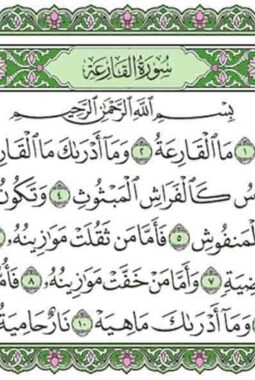 سُورَةُ القَارِعَة
بِسْمِ اللَّهِ الرَّحْمَٰنِ الرَّحِيمِ
١ مَا الْقَارِعَةُ ٢ وَمَا أَدْرَىٰكَ مَا الْقَارِ
سُ كَالْفَرَاشِ الْمَبْثُوثِ ٤ وَتَكُونُ
لْمَنفُوشِ ٥ فَأَمَّا مَن ثَقُلَتْ مَوَٰزِينُهُۥ
ضِيَةٍ ٧ وَأَمَّا مَنْ خَفَّتْ مَوَٰزِينُهُۥ ٨ فَأُ
وَمَا أَدْرَىٰكَ مَا هِيَهْ ١٠ نَارٌ حَامِيَةٌ